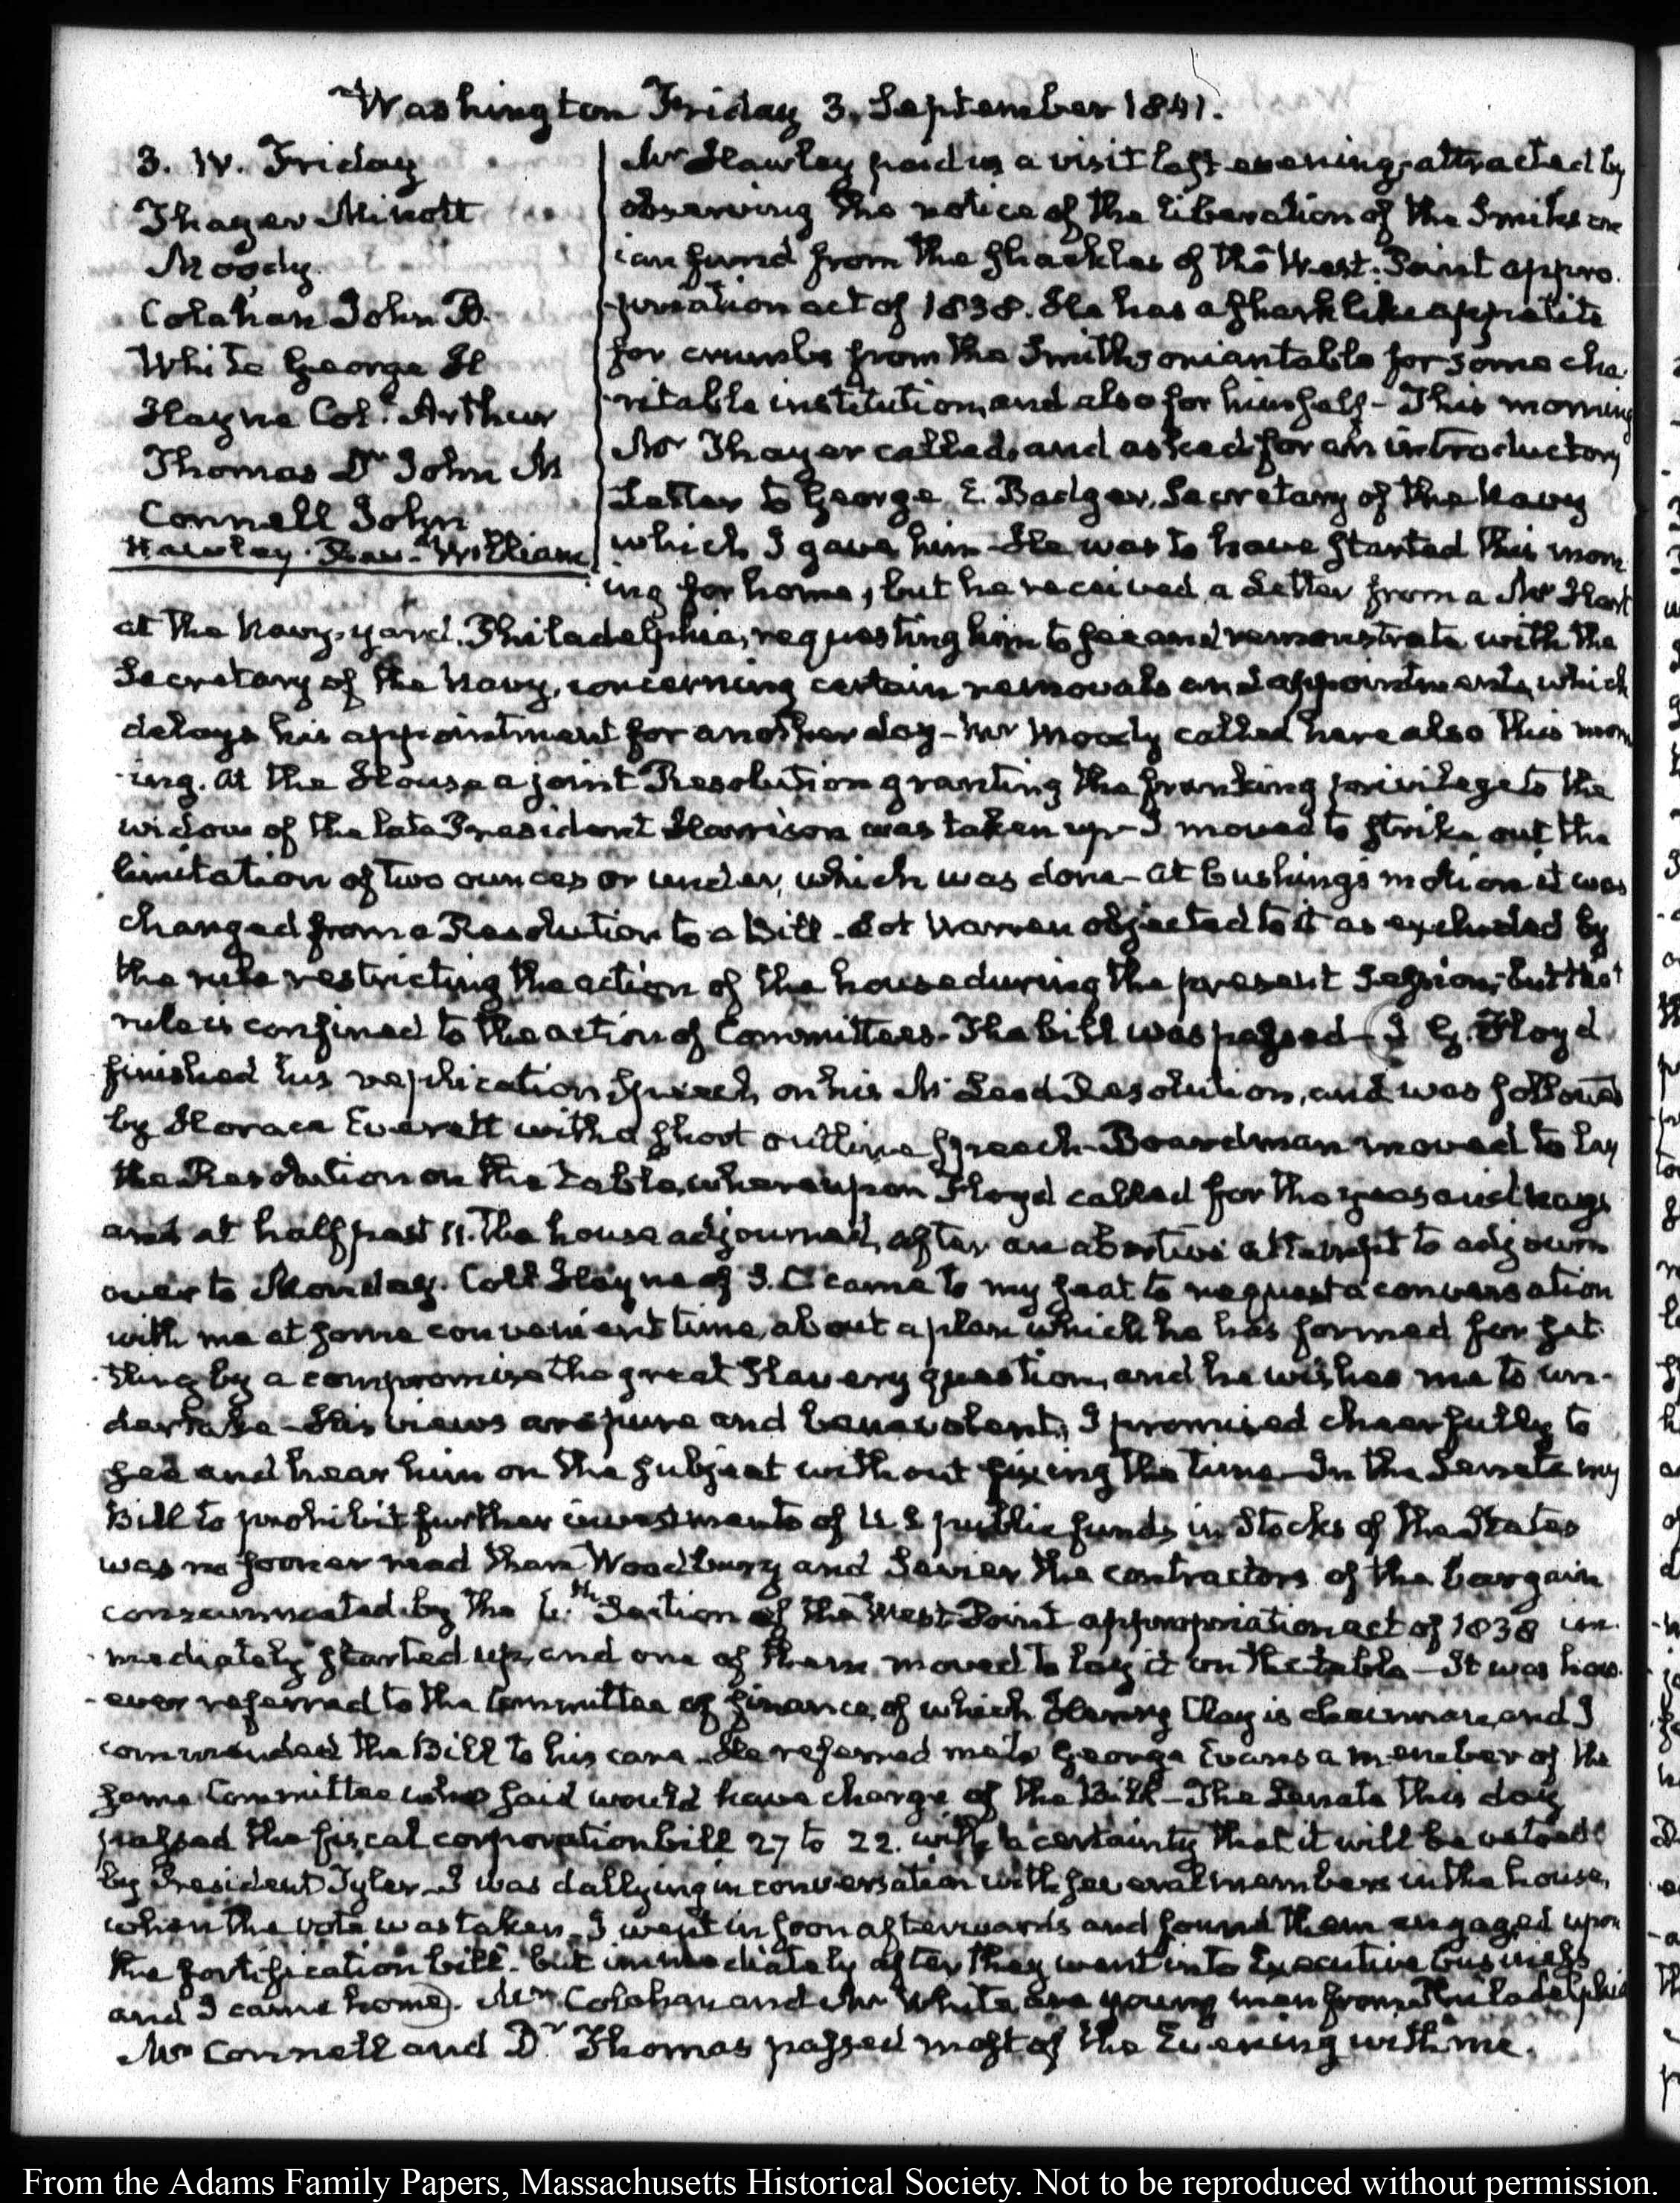 Washington Friday 3. September 1841.
3. IV. Friday
Thayer Minott
Moody.
Colahan John B.
White George H
Hayne Col.l Arthur
Thomas Dr John M
Connell John
Hawley Rev.d William
Mr Hawley paid us a visit last evening, attracted by
observing the notice of the liberation of the Smithson
ian fund from the shackles of the West-Point appro-
priation act of 1838. He has a sharklike appetite
for crumbs from the Smithsonian table for some cha-
ritable institution, and also for himself- This morning
Mr Thayer called, and asked for an introductory
Letter to George E. Badger, Secretary of the Navy
which I gave him- He was to have started this morn
ing for home, but he received a Letter from a Mr Hart
at the Navy-yard. Philadelphia, requesting him to see and remonstrate with the
Secretary of the Navy, concerning certain removals and appointments, which
delays his appointment for another day- Mr Moody called here also this morn
ing. At the House a joint Resolution granting the franking privilege to the
widow of the late President Harrison was taken up- I moved to strike out the
limitation of two ounces or under, which was done- At Cushing's motion it was
changed from a Resolution to a Bill- Lot Warren objected to it as excluded by
the rule restricting the action of the house during the present Session; but that
rule is confined to the action of Committees. The bill was passed- J G. Floyd
finished his replication speech, on his McLeod Resolution, and was followed
by Horace Everett with a short outline speech- Boardman moved to lay
the Resolution on the table, whereupon Floyd called for the yeas and nays
and at half past 11. the house adjourned, after an abortive attempt to adjourn
over to Monday. Coll Hayne of S. C came to my seat to request a conversation
with me at some convenient time, about a plan which he has formed for set-
tling by a compromise the great Slavery question, and he wishes me to un-
dertake- His views are pure and benevolent; I promised cheerfully to
see and hear him on the subject without fixing the time- In the Senate my
Bill to prohibit further investments of U. S public funds in Stocks of the States
was no sooner read than Woodbury and Sevier, the contractors of the bargain
consummated by the 6.th Section of the West-Point appropriation act of 1838 im-
mediately started up, and one of them moved to lay it on the table- It was how-
ever referred to the Committee of finance, of which Henry Clay is chairman, and I
commended the Bill to his care- He referred me to George Evans a member of the
same Committee who he said would have charge of the Bill- The Senate this day
passed the fiscal corporation bill 27 to 22. with a certainty that it will be vetoed
by President Tyler- I was dallying in conversation with several members in the house,
when the vote was taken- I went in soon afterwards and found them engaged upon
the fortification bill- but immediately after they went into Executive business
and I came home. Mr. Colahan and Mr White, are young men from Philadelphia
Mr Connell and Dr. Thomas passed most of the Evening with me.
From the Adams Family Papers, Massachusetts Historical Society. Not to be reproduced without permission.